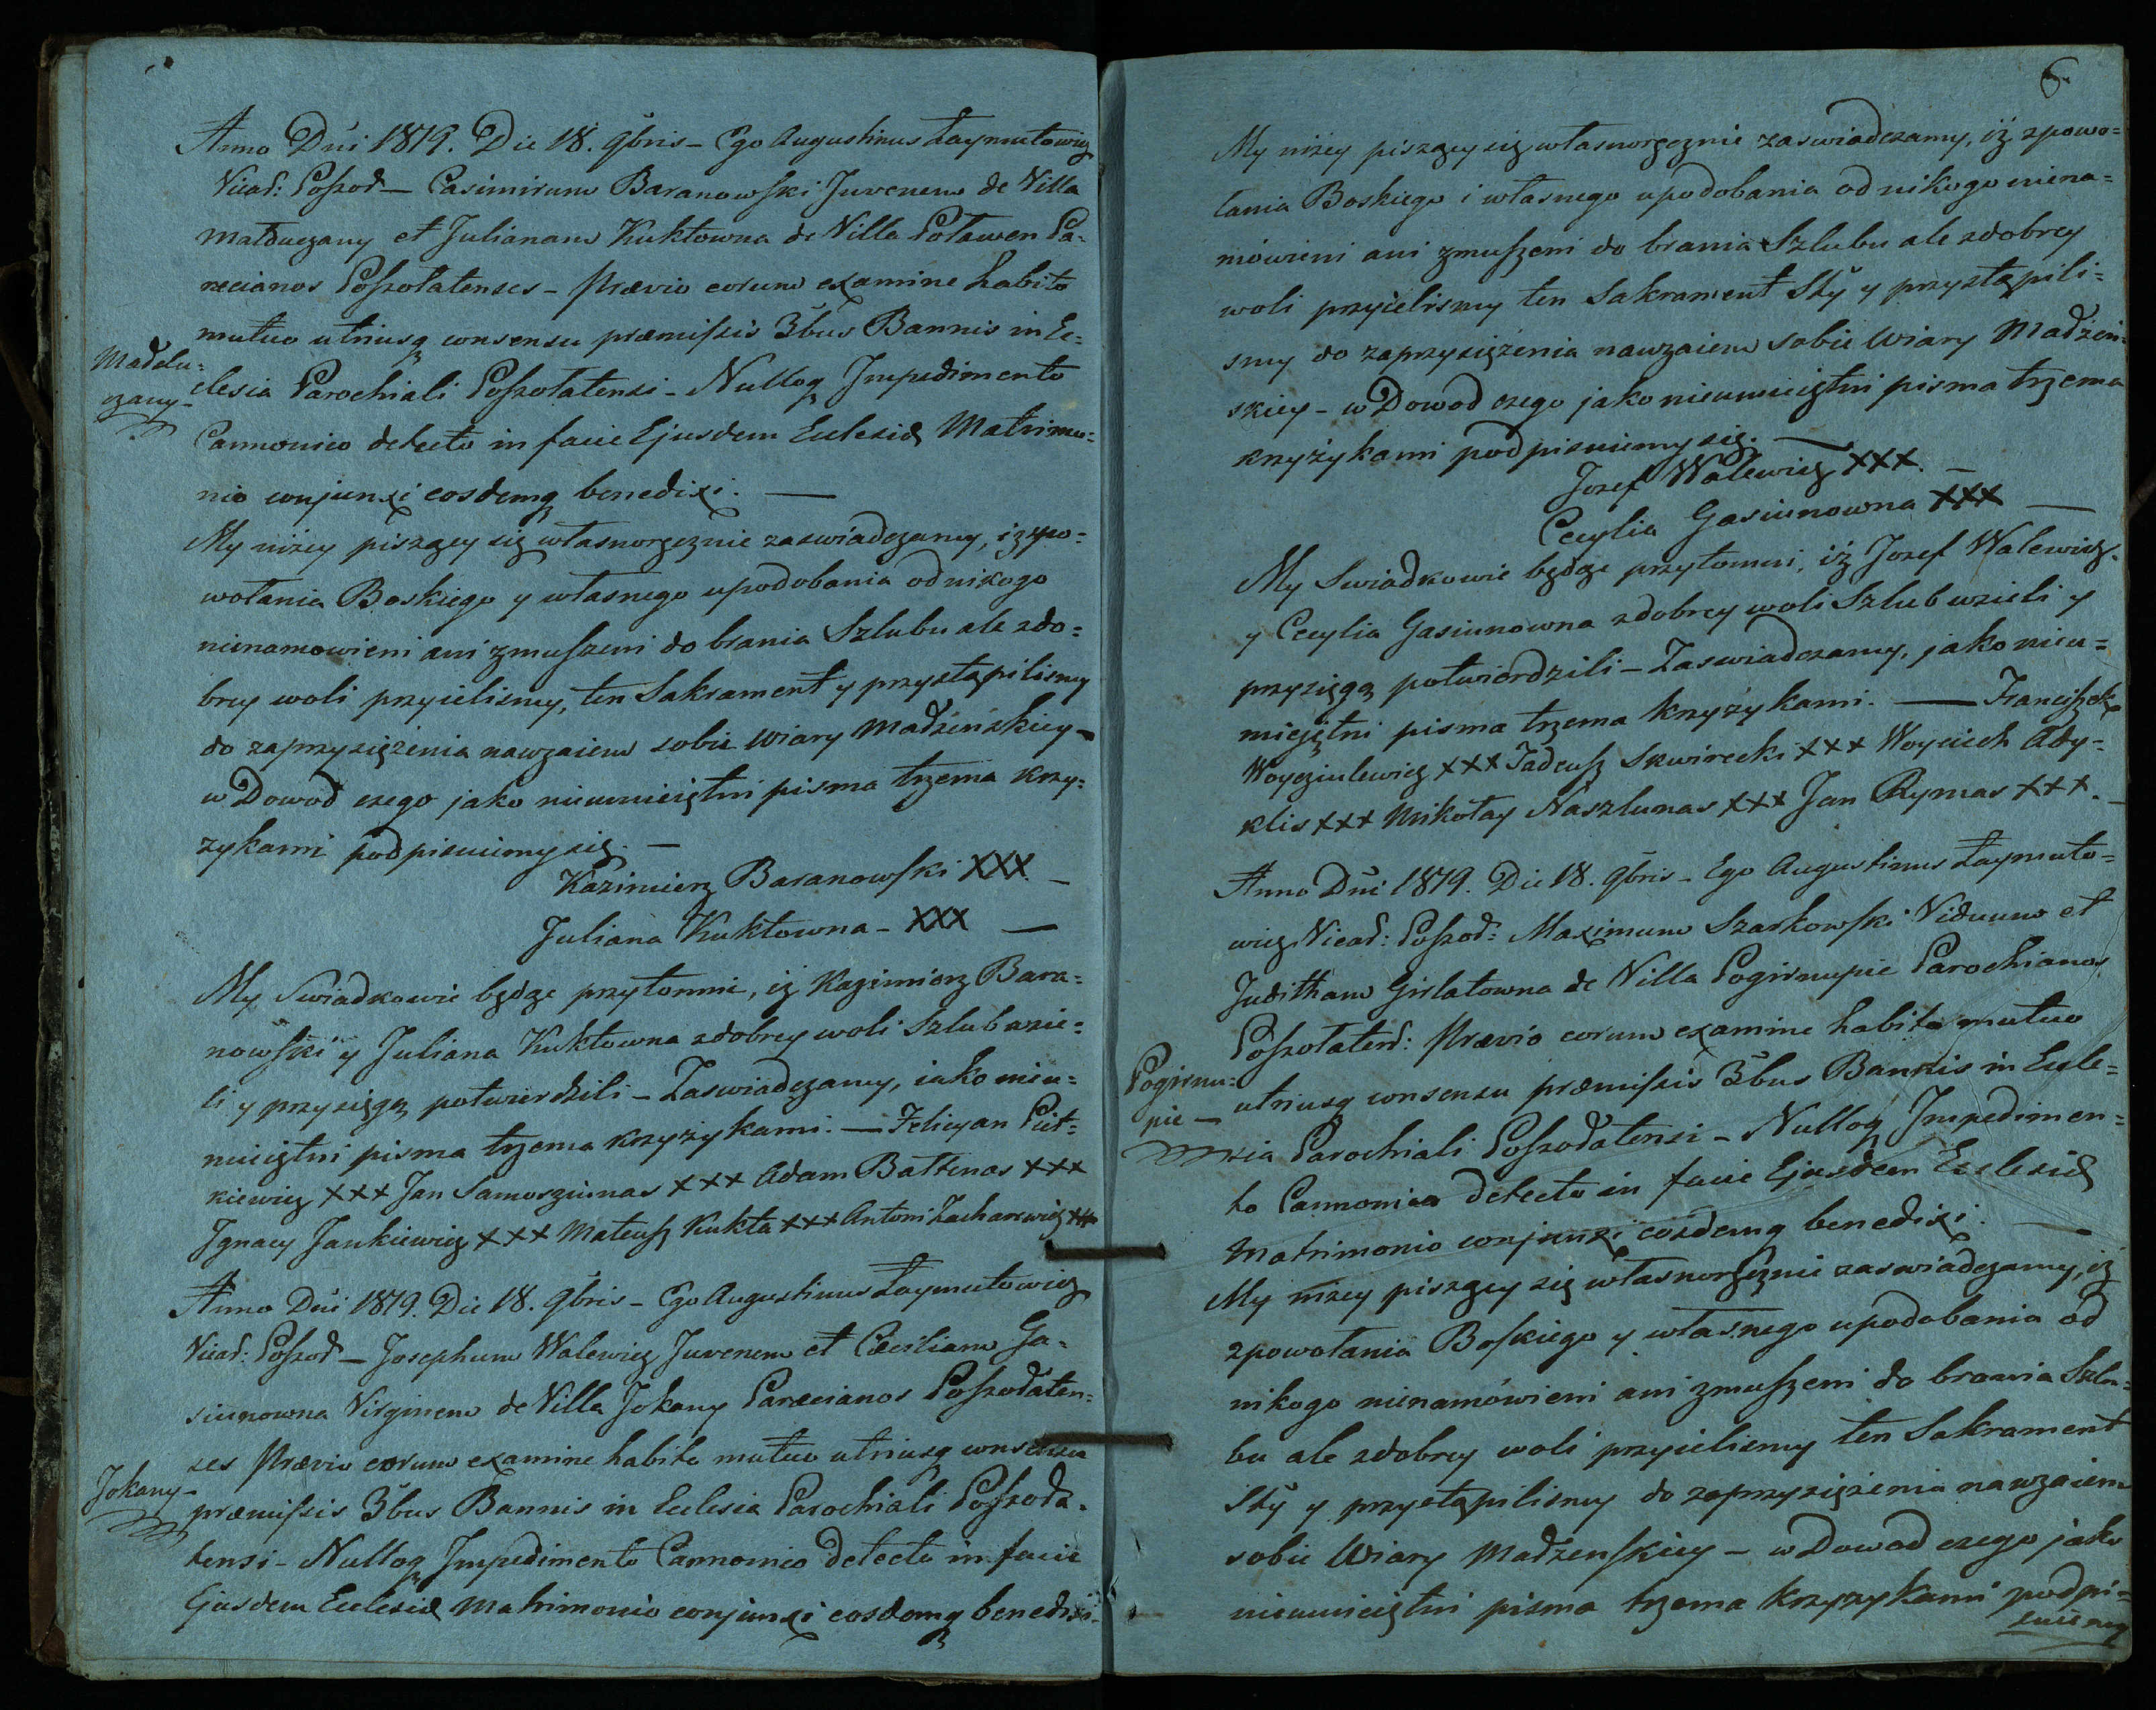 Anno Dńi 1819. Die 18. 9bris – Ego Augustinus Łaymutowicz
Vicar: Poszoł – Casimirum Baranowski Juvenem de Villa
Małduczany et Julianam Kukłowna de Villa Poławen Pa-
recianos Poszołatenses – Prævio eorum examine habito
mutuo utriusq consensu præmissis 3bus Bannis in Ec=
Madału=
czany –
clesia Parochiali Poszołatensi – Nulloq Impedimento
Cannonico detecto in facie Ejusdem Eclesiæ Matrimo=
nio conjunxi eosdemq benedixi. —
My niżey piszący się własnoręcznie zaswiadczamy, iż zpo=
wołania Boskiego y własnego upodobania od nikogo
nienamowieni ani zmuszeni do brania Szlubu ale zdo=
brey woli przyielismy, ten Sakrament y przystąpilismy
do zaprzysiężenia nawzaiem sobie Wiary Madżeńskiey –
w Dowod czego jako nieumieiętni pisma trzema krzy=
zykami podpisuiemy się. —
Kazimierz Baranowski XXX —
Juliana Kukłowna – XXX —
My Swiadkowie będąc przytomni, iż Kazimierz Bara=
nowski y Juliana Kukłowna zdobrey woli Szlub wzie=
li y przysięgą potwierdzili – Zaswiadczamy, iako nieu=
mieiętni pisma trzema krzyżykami. — Felicyan Piet=
kiewicz XXX Jan Samoszunas XXX Adam Battenas XXX
Ignacy Jankiewicz XXX Mateusz Kukła XXX Antoni Zacharewicz XXX
Anno Dńi 1819. Die 18. 9bris – Ego Augustinus Łaymutowicz
Vicar: Poszoł – Josephum Walewicz Juvenem et Cæciliam Ga-
siunowna Virginem de Villa Jokany Parecianos Poszołaten=
ses Prævio eorum examine habito mutuo utriusq consensu
Jokany –
præmissis 3bus Bannis in Eclesia Parochiali Poszoła-
tensi – Nulloq Impedimento Cannonico detecto in facie
Ejusdem Eclesiæ Matrimonio conjunxi eosdemq benedixi.
6
My niżey piszący się własnoręcznie zaswiadczamy, iż zpowo=
łania Boskiego i własnego upodobania od nikogo niena=
mówieni ani zmuszeni do brania Szlubu ale zdobrey
woli przyielismy ten Sakrament Sty y przystąpili=
smy do zaprzysiężenia nawzaiem sobie Wiary Madżeń=
skiey – w Dowod czego jako nieumieiętni pisma trzema
krzyżykami podpisuiemy się. —
Jozef Walewicz XXX. —
Cecylia Gasiunowna XXX —
My Swiadkowie będąc przytomni, iż Jozef Walewicz
y Cecylia Gasiunowna zdobrey woli Szlub wzieli y
przysięgą potwierdzili – Zaswiadczamy, jako nieu=
mieiętni pisma trzema krzyżykami. — Franciszek
Woyciulewicz XXX Tadeusz Skwirecki XXX Woyciech Ady=
klis XXX Mikołay Naszlunas XXX Jan Rymas XXX. —
Anno Dńi 1819. Die 18. 9bris – Ego Augustinus Łaymuto=
wicz Vicar: Poszoł: Maximum Szarkowski Viduum et
Juditham Girlatowna de Villa Pogirnupie Parochianos
Poszołatens: Prævio eorum examine habito mutuo
Pogirnu=
pie —
utriusq consensu præmissis 3bus Bannis in Eccle=
sia Parochiali Poszołatensi – Nulloq Impedimen=
to Cannonico detecto in facie Ejusdem Eclesiæ
Matrimonio conjunxi eosdemq benedixi. —
My niżey piszący się własnoręcznie zaswiadczamy, iż
zpowołania Boskiego y własnego upodobania od
nikogo nienamówieni ani zmuszeni do brania Szlu=
bu ale zdobrey woli przyielismy ten Sakrament
Sty y przystąpilismy do zaprzysiężenia nawzaiem
sobie Wiary Madżenskiey – w Dowod czego jako
nieumieiętni pisma trzema krzyzykami podpi=
suiemy